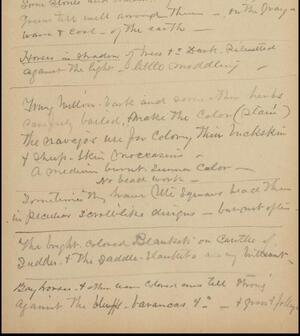 Some stones and
Greens tell well around them - on the gray
warm & cool - of the earth -
Horses in shadow of trees & Dark. Silhouetted
against the light - little modeling
From Willow-bark and some other herbs
carefully boiled, make the Color (stain)
The Navajos use for coloring their buckskin
& sheep-skin moccasins -
A medium burnt sienna color -
No bead work -
Sometimes they have Ute Squaws bead them
in peculiar scroll like designs -
The bright-colored Blankets on Cantle of
Saddle - & the Saddle-blankets are very brilliant -
Gay horses - & other warm colored ones tell strong
against the bluffs - barancas &c - & green foliage